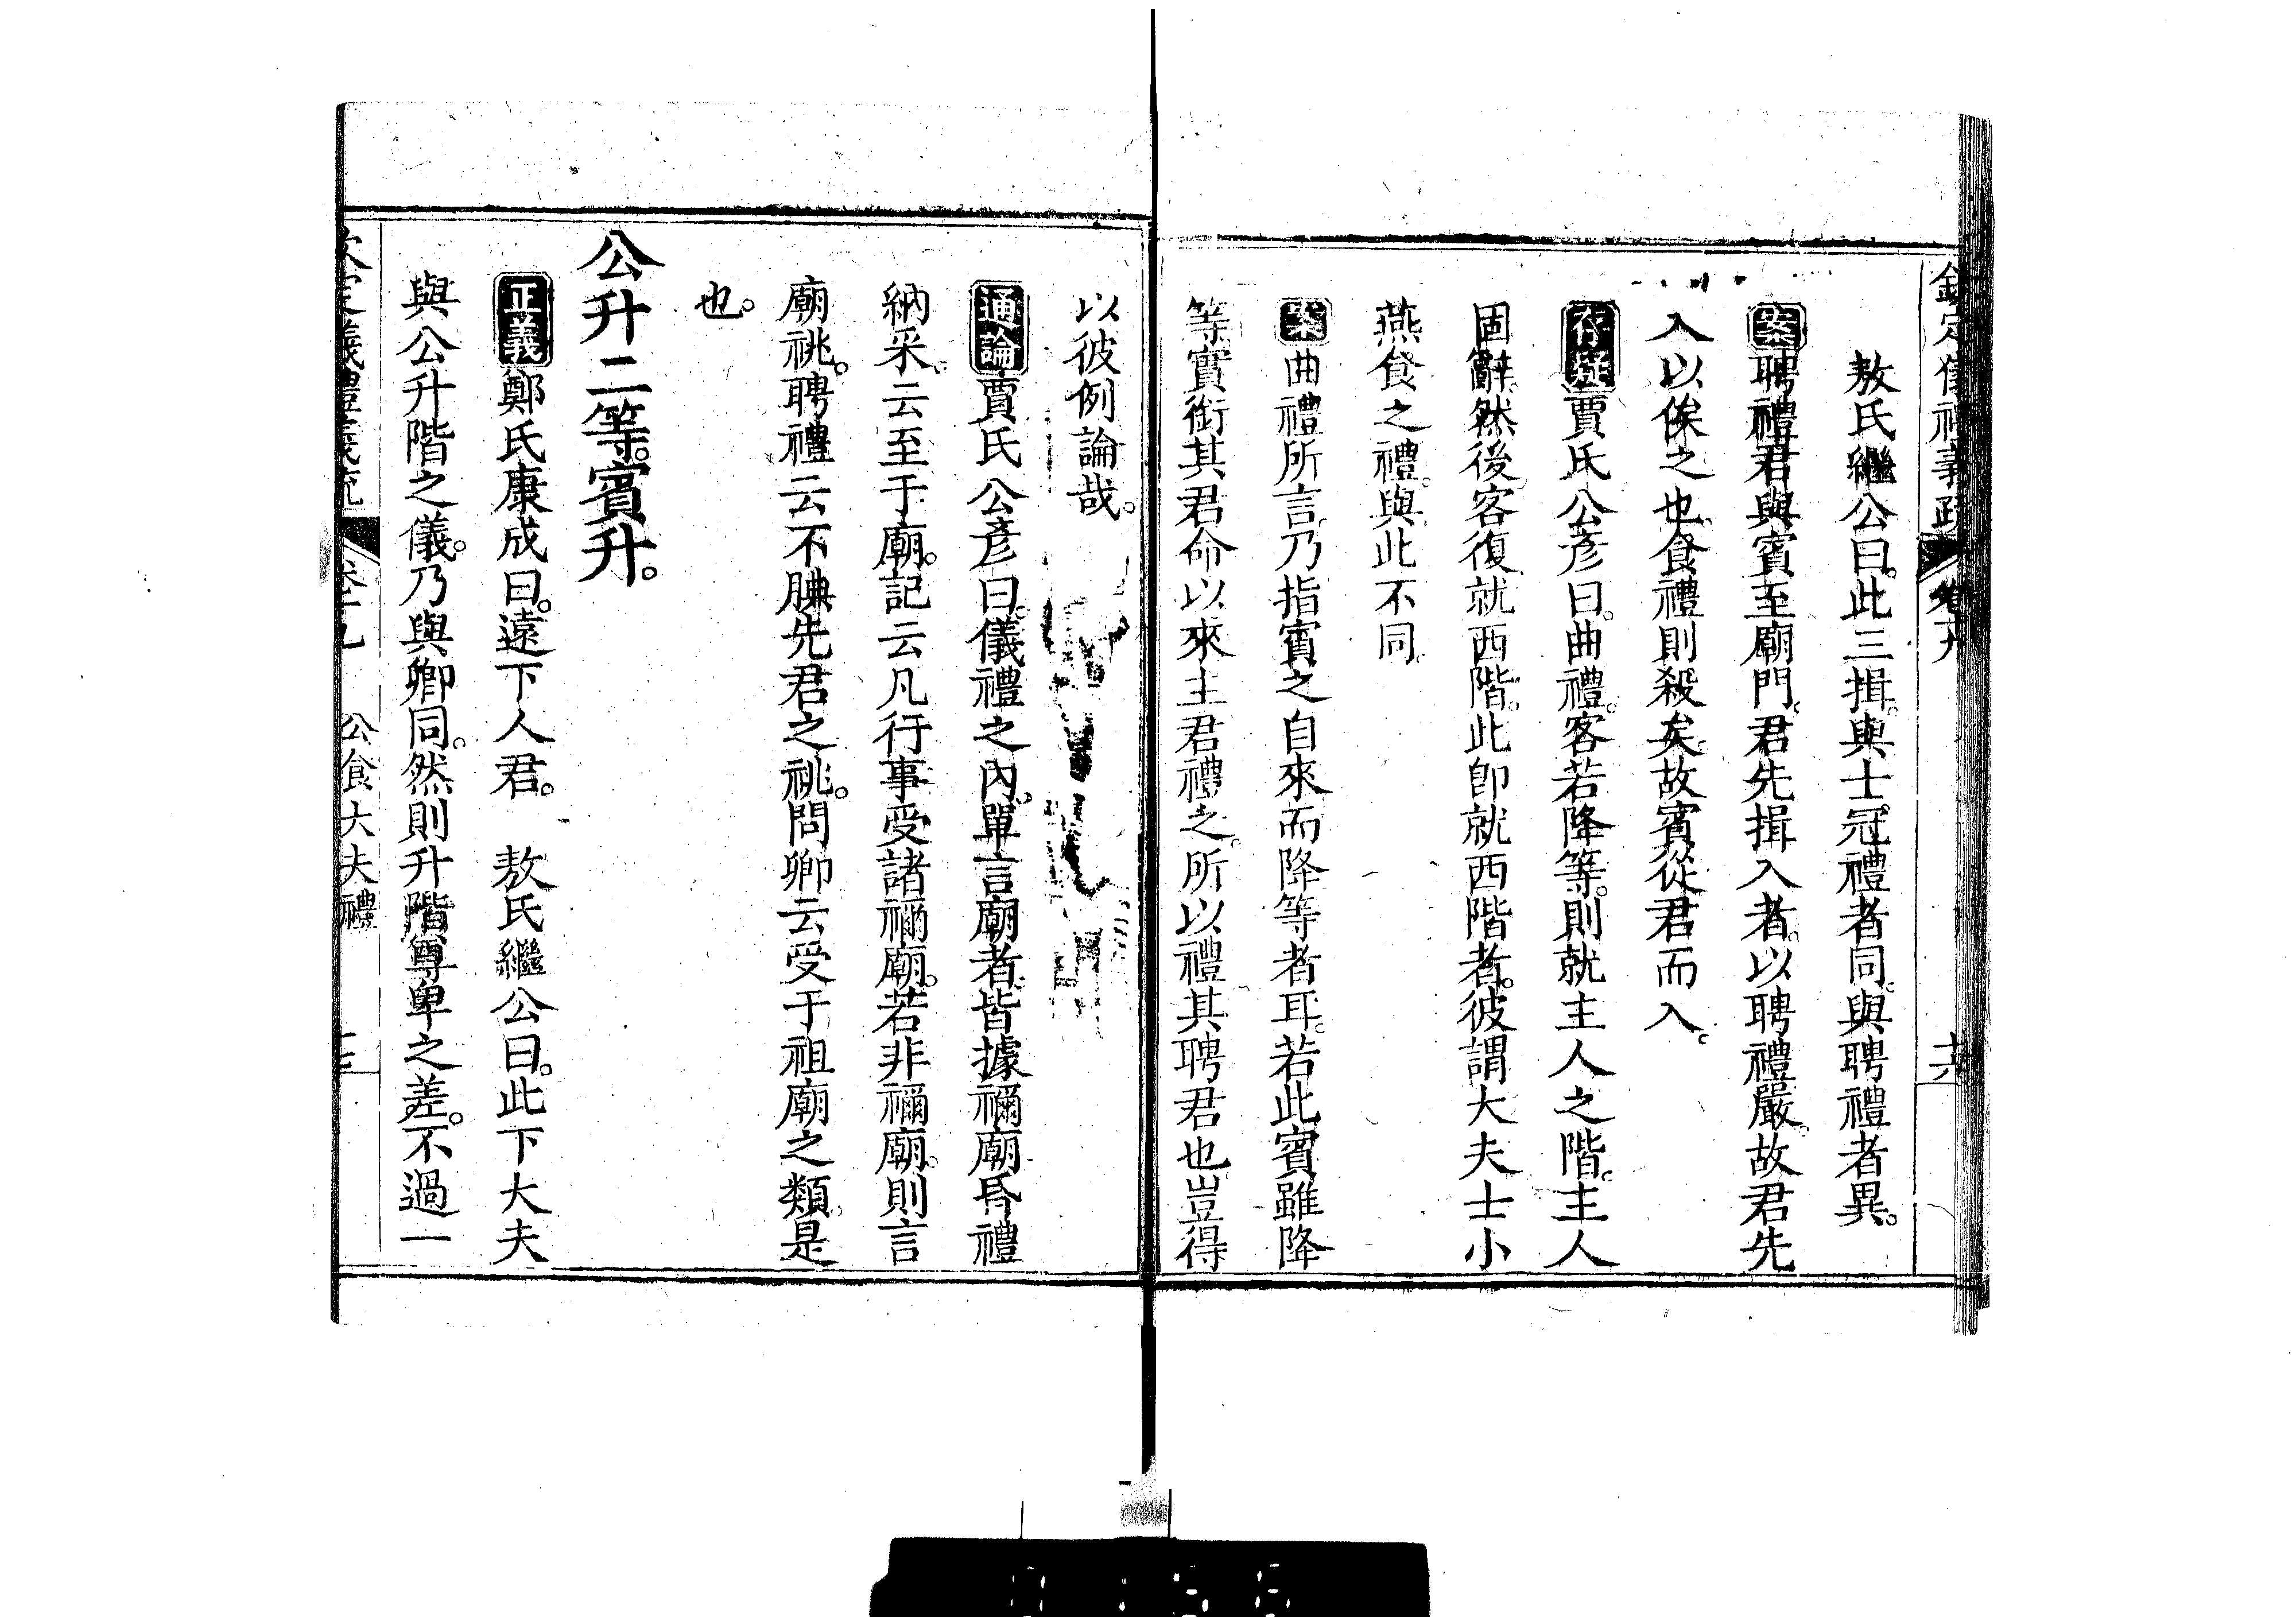 欽定儀禮義疏 卷十九 十六
敖氏繼公曰。此三揖。與士冠禮者同。與聘禮者異。
案聘禮君與賓至廟門。君先揖入者。以聘禮嚴。故君先
入以俟之也。食禮則殺矣。故賓從君而入。
存疑賈氏公彥曰。曲禮。客若降等。則就主人之階。主人
固辭。然後客復就西階。此卽就西階者。彼謂大夫士小
燕食之禮。與此不同。
案曲禮所言。乃指賓之自來而降等者耳。若此賓雖降
等。實銜其君命以來。主君禮之。所以禮其聘君也。豈得
以彼例論哉。
通論賈氏公彥曰。儀禮之內。單言廟者。皆據禰廟。昏禮
納采。云至于廟。記云凡行事受諸禰廟。若非禰廟。則言
廟祧。聘禮云不腆先君之祧。問卿云受于祖廟之類是
也。
公升二等。賓升。
正義鄭氏康成曰。遠下人君。 敖氏繼公曰。此下大夫
與公升階之儀。乃與卿同。然則升階尊卑之差。不過一
欽定儀禮義疏 卷十九 公食大夫禮 十七